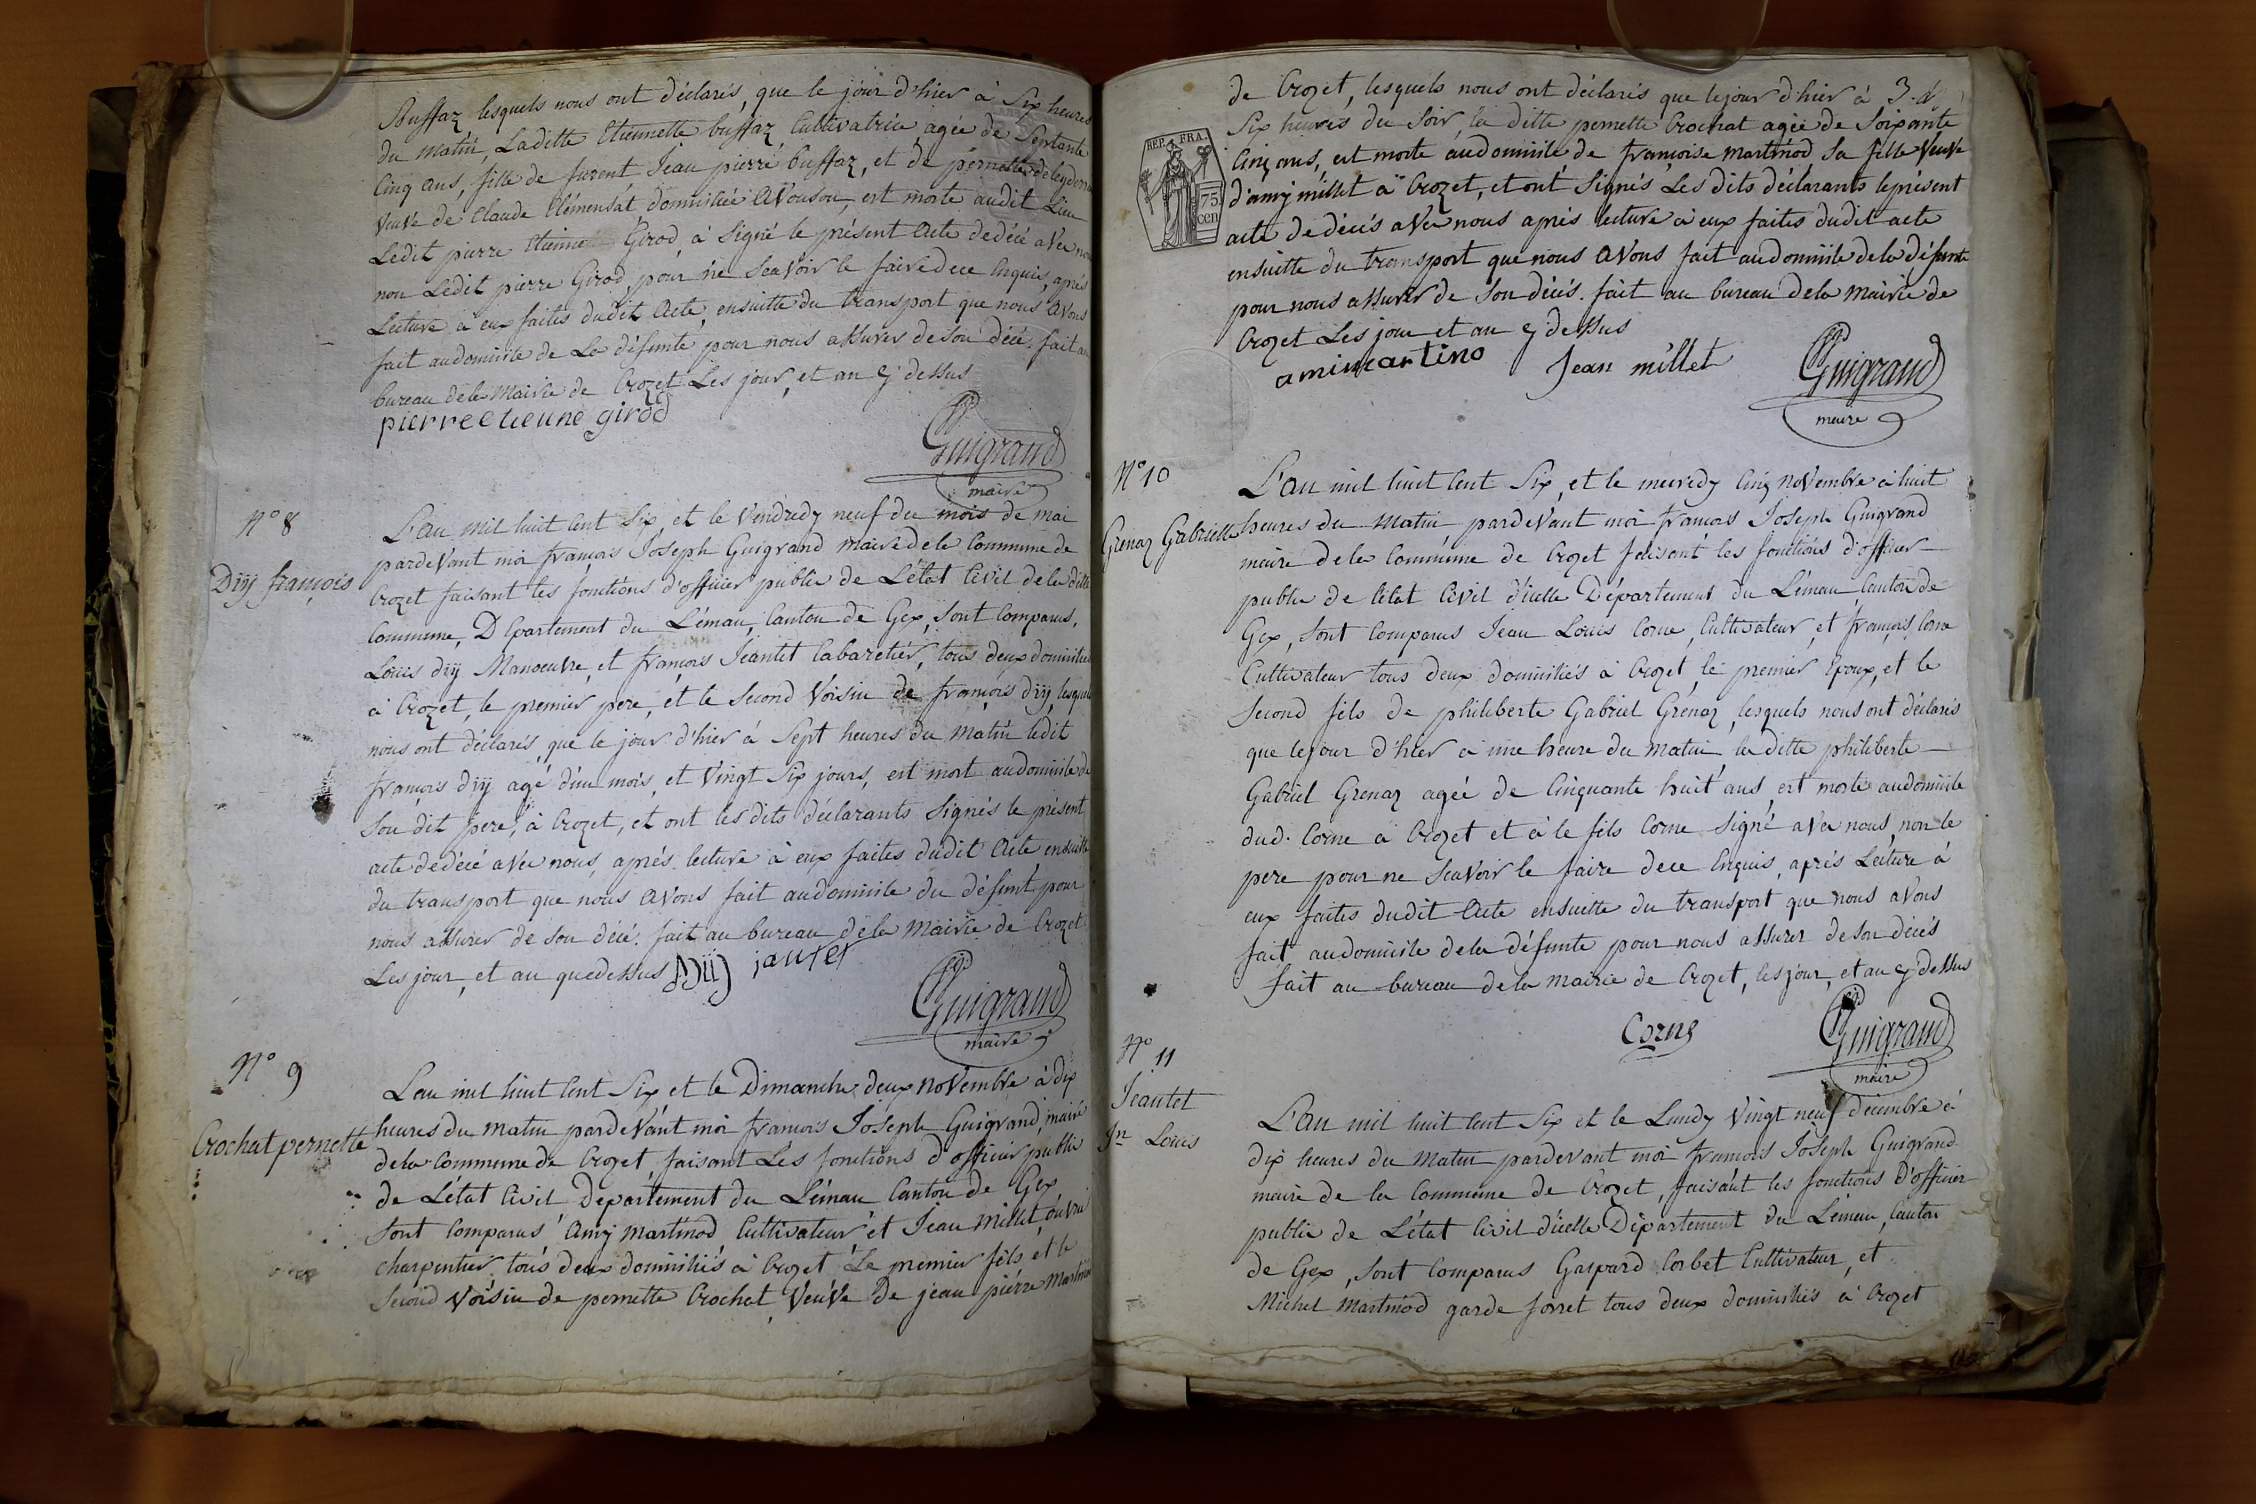 Buffaz lesquels nous ont déclarés, que le jour d'hier à Six heures
du matin, Laditte Etiennette buffaz, Cultivatrice agée de Septante
Cinq ans, fille de furent Jean pierre buffaz, et de pernette
veuve de Claude Clémensat domiciliée a Vouson, est morte audit Lieu
Ledit pierre Etienne Girod, à Signé le présent Acte dedécé avec nous
non Ledit pierre Girod, pour ne Scavoir le faire dece Enquis, aprés
Lecture à eux faites dudit Acte, ensuitte du transport que nous avons
fait audomicile de La défunte pour nous assurer deson décé. fait au
bureau dela Mairie de Crozet Les jour, et an cy dessus
pierre etieune girod
Guigrand
maire
N° 8
Dijj françois
L'an mil huit Cent Six, et le Vendredy neuf du mois de mai
pardevant moi françois Joseph Guigrand maire dela Commune de
Crozet faisant les fonctions d'officier public de L'état Civil dela ditte
Commune, Département du Léman, Canton de Gex, Sont Comparus,
Louis dijj Manoeuvre, et françois Jeantet Cabaretier, tous deux domiciliés
à Crozet, le premier pere, et le Second Voisin de françois dijj, lesquels
nous ont déclarés, que le jour d'hier à Sept heures du Matin ledit
françois dijj agé d'un mois, et Vingt Six jours, est mort audomicile de
Son dit pere, à Crozet, et ont les dits déclarants Signés le présent
acte dedécé avec nous, aprés lecture à eux faites dudit Acte ensuitte
du transport que nous avons fait audomicile du défunt pour
nous assurer de son décé. fait au bureau dela Mairie de Crozet
Les jour, et an quedessus Dijj jautet
Guigrand
maire
N° 9
Crochat pernette
L'an mil huit Cent Six, et le Dimanche deux Novembre à dix
heures du matin pardevant moi françois Joseph Guigrand, maire
dela Commune de Crozet faisant Les fonctions d'officier public
de L'état Civil Département du Léman Canton de Gex
Sont Comparus Amy Martinod Cultivateur et Jean Millet ouvrié
charpentier tous deux domiciliés à Crozet Le premier fils, et le
Second Voisin de pernette Crochat, Veuve de jean pierre Martinod
de Crozet, lesquels nous ont déclarés que lejour d'hier à 3. d
Six heures du Soir, la ditte pernette Crochat agée de Soixante
Cinq ans, est morte audomicile de françoise Martinod Sa fille Veuve
d'amy millet à Crozet, et ont Signés Les dits déclarants leprésent
acte de décés avec nous aprés lecture à eux faites dudit acte
ensuitte du transport que nous avons fait audomicile dela défunte
pour nous assurer de Son décés. fait au bureau dela Mairie de
Crozet Les jour et an cy dessus
REP. FRA.
75
cen
amimartino
Jean millet
Guigrand
maire
N° 10
Grenaz Gabrielle
L'an mil huit Cent Six, et le mercredy Cinq Novembre à huit
heures du Matin pardevant moi françois Joseph Guigrand
maire dela Commune de Crozet faisant les fonctions d'officier
public de l'état Civil d'icelle Département du Léman, Canton de
Gex, Sont Comparus Jean Louis Corne, Cultivateur, et françois Corne
Cultivateur tous deux domiciliés à Crozet, le premier Epoux, et le
Second fils de philiberte Gabriel Grénaz, lesquels nous ont déclarés
que lejour d'hier à une heure du Matin, la ditte philiberte
Gabriel Grenaz agée de Cinquante huit ans, est morte audomicile
dud. Corne à Crozet et à le fils Corne Signé avec nous, non le
pere pour ne Scavoir le faire dece Enquis, aprés Lecture à
eux faites dudit Acte ensuitte du transport que nous avons
fait audomicile dela défunte pour nous assurer de son décés
fait au bureau dela Mairie de Crozet, les jour, et an cy dessus
Corne
Guigrand
maire
N° 11
Jeantet
Jn Louis
L'an mil huit Cent Six et le Lundy Vingt neuf décembre à
dix heures du Matin pardevant moi françois Joseph Guigrand
maire de la Commune de Crozet, faisant les fonctions d'officier
public de L'état Civil d'icelle Département du Léman, Canton
de Gex, Sont Comparus Gaspard Corbet Cultivateur, et
Michel Martinod garde forret tous deux domiciliés à Crozet